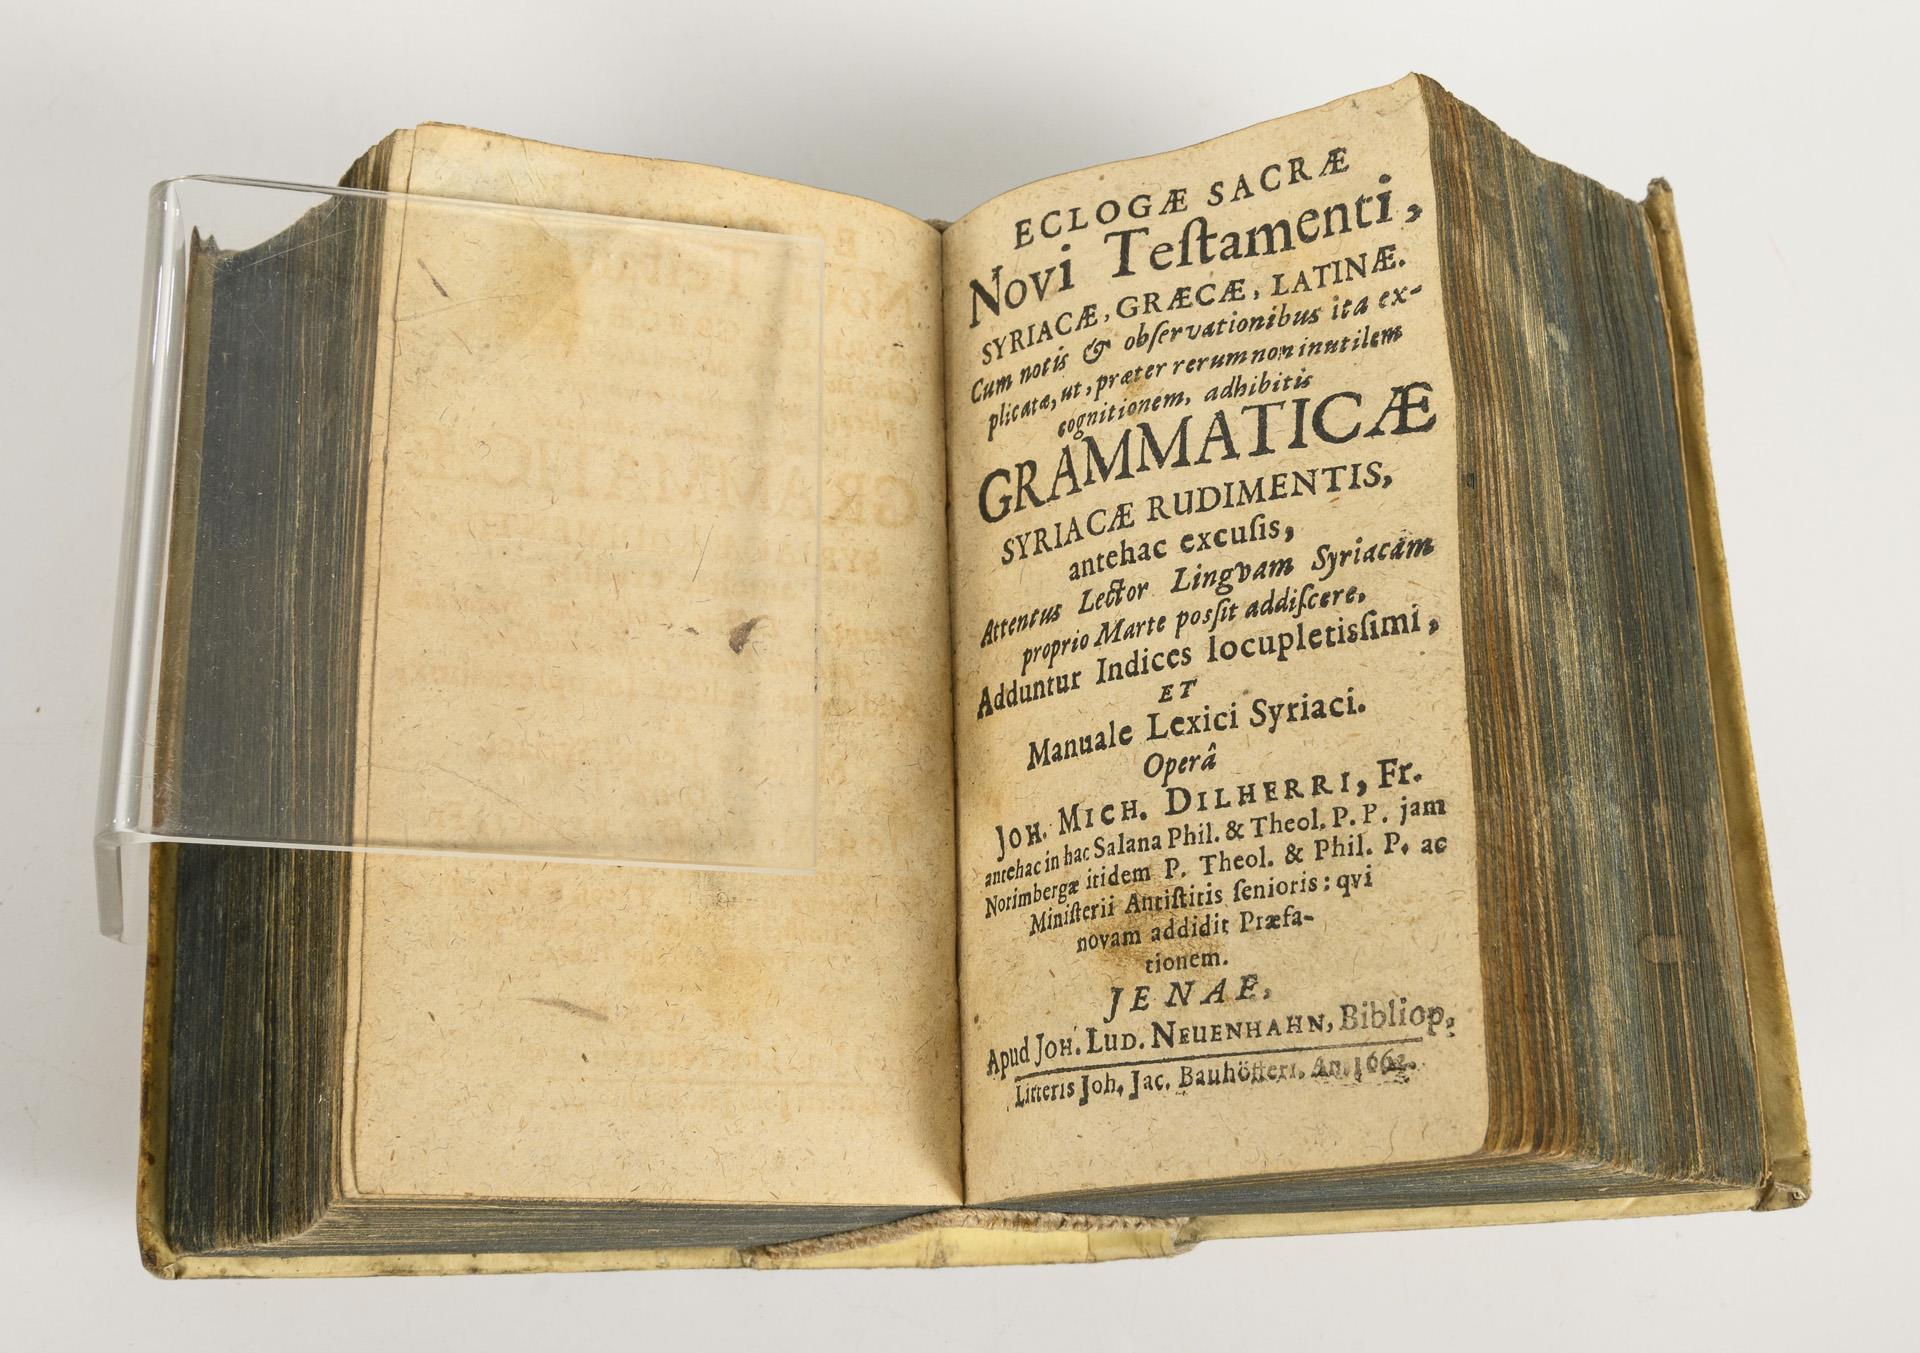 ECLOGÆ SACRÆ
Novi Teſtamenti,
SYRIACÆ, GRÆCÆ, LATINÆ.
Cum notis & obſervationibus ita ex-
plicatæ, ut, præter rerum non inutilem
cognitionem, adhibitis
GRAMMATICÆ
SYRIACÆ RUDIMENTIS,
antehac excuſis,
Attentus Lector Lingvam Syriacam
proprio Marte poſſit addiſcere.
Adduntur Indices locupletisſimi,
ET
Manuale Lexici Syriaci.
Operâ
JOH. MICH. DILHERRI, Fr.
antehac in hac Salana Phil. & Theol. P. P. jam
Norimbergæ itidem P. Theol. & Phil. P. ac
Miniſterii Antiſtitis ſenioris: qvi
novam addidit Præfa-
tionem.
JENAE,
Apud JOH. LUD. NEUENHAHN, Bibliop.
Litteris Joh. Jac. Bauhöfferi. An.